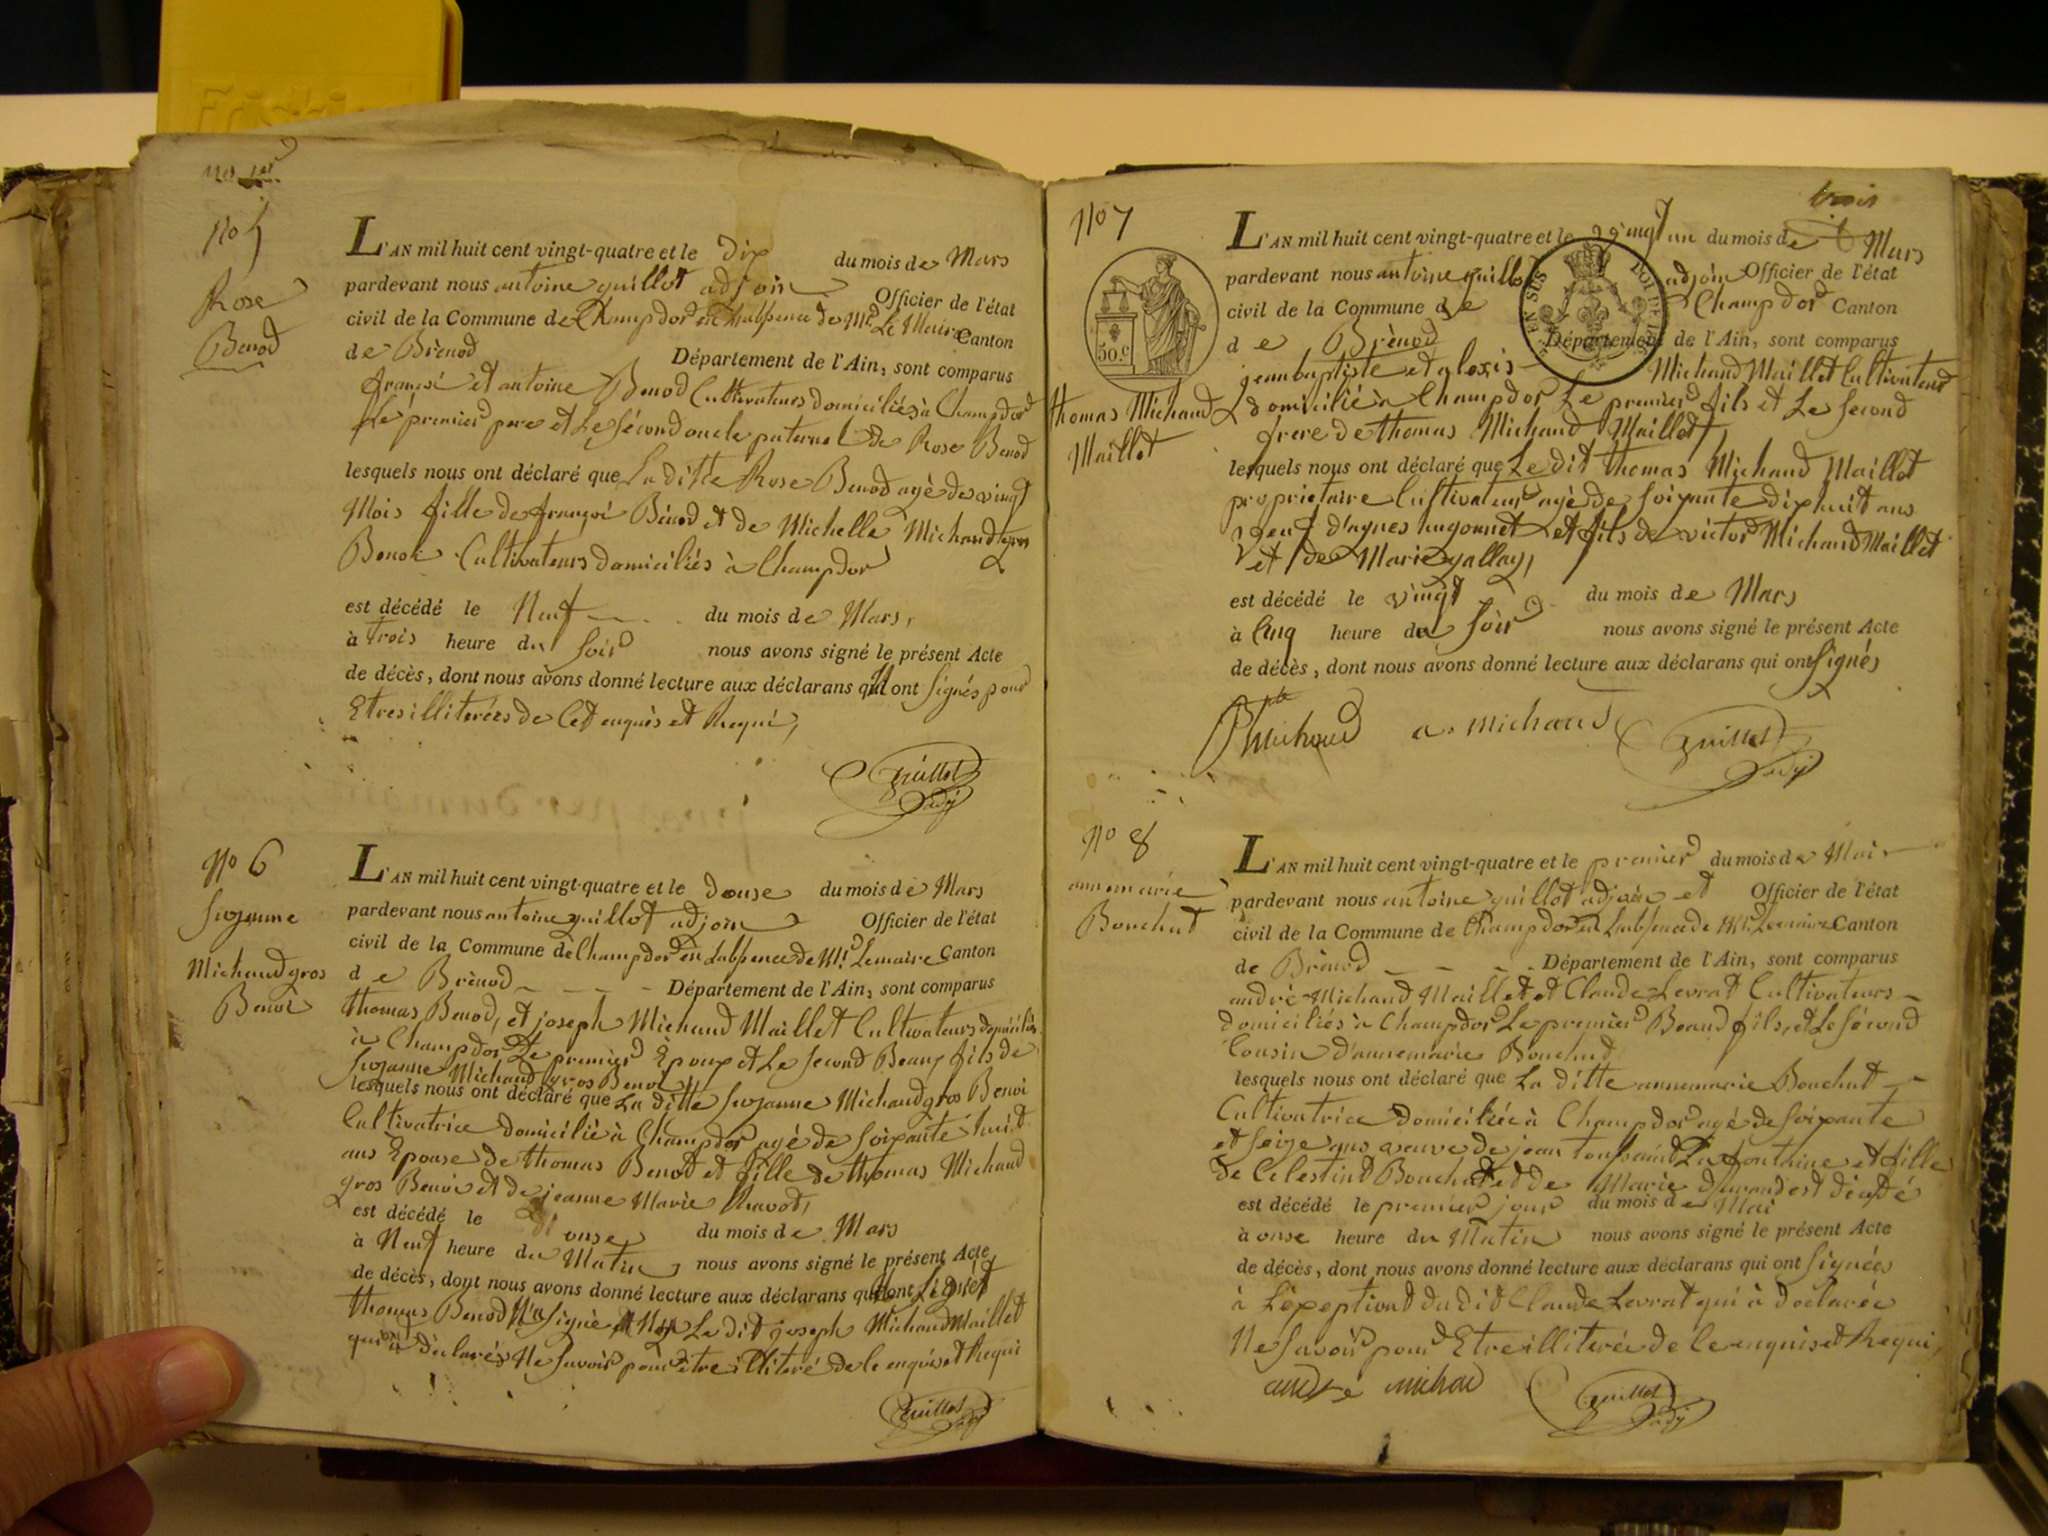 No 5
Rose
Benod
L'AN mil huit cent vingt-quatre et le dix du mois de Mars
pardevant nous antoine guillot adjoin Officier de l'état
civil de la Commune de Champdor en Labsence de Mr Le Maire Canton
de Brénod Département de l'Ain, sont comparus
françoi et antoine Benod Cultivateurs domiciliés à Champdor
Le premier pere et Le sécond oncle paternel de Rose Benod
lesquels nous ont déclaré que La ditte Rose Benod agé de vingt
Mois fille de françoi Bénod et de Michelle Michaud gros
Benoi Cultivateurs domiciliés à Champdor
est décédé le Neuf du mois de Mars,
à trois heure du soir nous avons signé le présent Acte
de décès, dont nous avons donné lecture aux déclarans qui ont signés pour
Etres illiterées de Cet enquis et Requi,
Guillot
adj
No 6
Suzanne
Michaud gros
Benoi
L'AN mil huit cent vingt-quatre et le douse du mois de Mars
pardevant nous antoine guillot adjoin Officier de l'état
civil de la Commune de Champdor en Labsence de Mr Lemaire Canton
de Brénod Département de l'Ain, sont comparus
thomas Benod, et joseph Michaud Maillet Cultivateurs domiciliés
à Champdor Le premier Epoux et Le second Beaux fils de
Suzanne Michaud gros Benoi
lesquels nous ont déclaré que La ditte Suzanne Michaud gros Benoi
Cultivatrice domicilié à Champdor agé de soixante huit
ans Epouse de thomas Benod et fille de thomas Michaud
gros Benoi et de jeanne Marie Ravod,
est décédé le onse du mois de Mars
à Neuf heure du Matin, nous avons signé le présent Acte
de décès, dont nous avons donné lecture aux déclarans qui ont Signét
thomas Benod N'a signé Le dit joseph Michaud Maillet
qui à déclarés Ne savoir pour être illiteré de le enquis et Requi
Guillot
adj
trois
No 7
50.c
thomas Michaud
Maillet
L'AN mil huit cent vingt-quatre et le vingt un du mois de Mars
pardevant nous antoine guillot adjoin Officier de l'état
civil de la Commune de Champdor Canton
de Brénod Département de l'Ain, sont comparus
EN SUS
jean baptiste et alexis Michaud Maillet Cultivateurs
domicilié à Champdor Le premier fils et Le second
frere de thomas Michaud Maillet,
lesquels nous ont déclaré que Le dit thomas Michaud Maillet
proprietaire Cultivateur agé de soixante dixhuit ans
veuf d'agnes hugonnet et fils de victor Michaud Maillet
et de Marie gallay,
est décédé le vingt du mois de Mars
à Cinq heure du soir nous avons signé le présent Acte
de décès, dont nous avons donné lecture aux déclarans qui ont signés
Michaud a. michaud Guillot
adj
No 8
annemarie
Bouchut
L'AN mil huit cent vingt-quatre et le premier du mois de Mai
pardevant nous antoine guillot adjoin et Officier de l'état
civil de la Commune de Champdor en Labsence de Mr. Lemaire Canton
de Brénod Département de l'Ain, sont comparus
andré Michaud Maillet et Claude Levrat Cultivateurs
domiciliés à Champdor Le premier Beaud fils, et Le sécond
Cousin d'annemarie Bouchut
lesquels nous ont déclaré que La ditte annemarie Bouchut
Cultivatrice domiciliée à Champdor agé de soixante
et seize ans veuve de jean toussaint La fontaine et fille
de Celestind Bouchut et de Marie durand est décédé
est décédé le premier jour du mois de Mai
à onse heure du Matin nous avons signé le présent Acte
de décès, dont nous avons donné lecture aux déclarans qui ont signées
à L'éxeptiont du dit Claude Levrat qui à déclarée
Ne savoir pour Etre illiterée de le enquis et Requi,
andré michau Guillot
adj